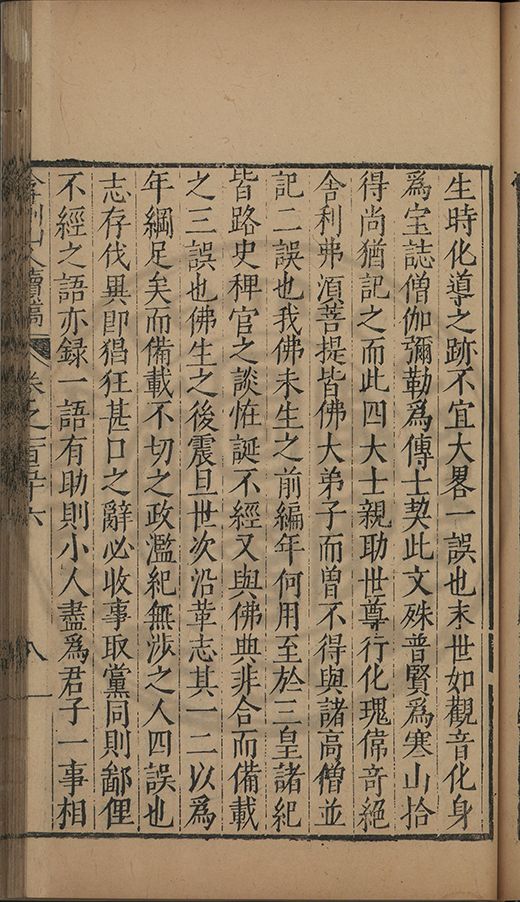 生時化導之跡不宜大畧一誤也末世如觀音化身
爲宝誌僧伽彌勒爲傳士契此文殊普賢爲寒山拾
得尚猶記之而此四大士親助世尊行化瑰偉奇絕
舍利弗湏菩提皆佛大弟子而曾不得與諸高僧並
記二誤也我佛未生之前編年何用至於三皇諸紀
皆路史稗官之談恠誕不經又與佛典非合而備載
之三誤也佛生之後震旦世次沿革志其一二以爲
年綱足矣而備載不切之政濫紀無涉之人四誤也
志存伐異卽猖狂甚口之辭必收事取黨同則鄙俚
不經之語亦録一語有助則小人盡爲君子一事相
弇州山人續稿 卷之一百五十六 八